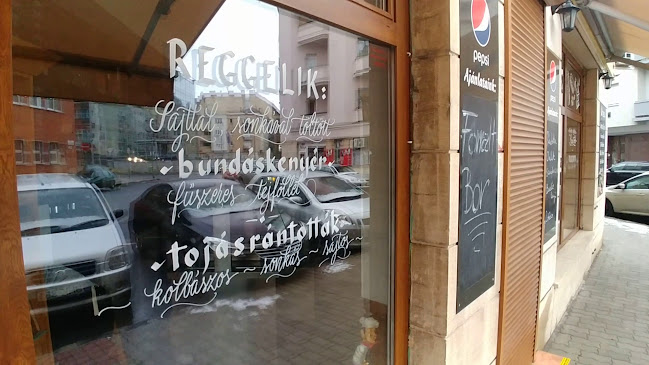 REGGELIK:
Sajttal, sonkával töltött
-bundáskenyér-
fűszeres tejföllel
-tojásrántották-
kolbászos ~ sonkás ~ sajtos
pepsi
Ajánlatunk:
Forralt
Bor
pepsi